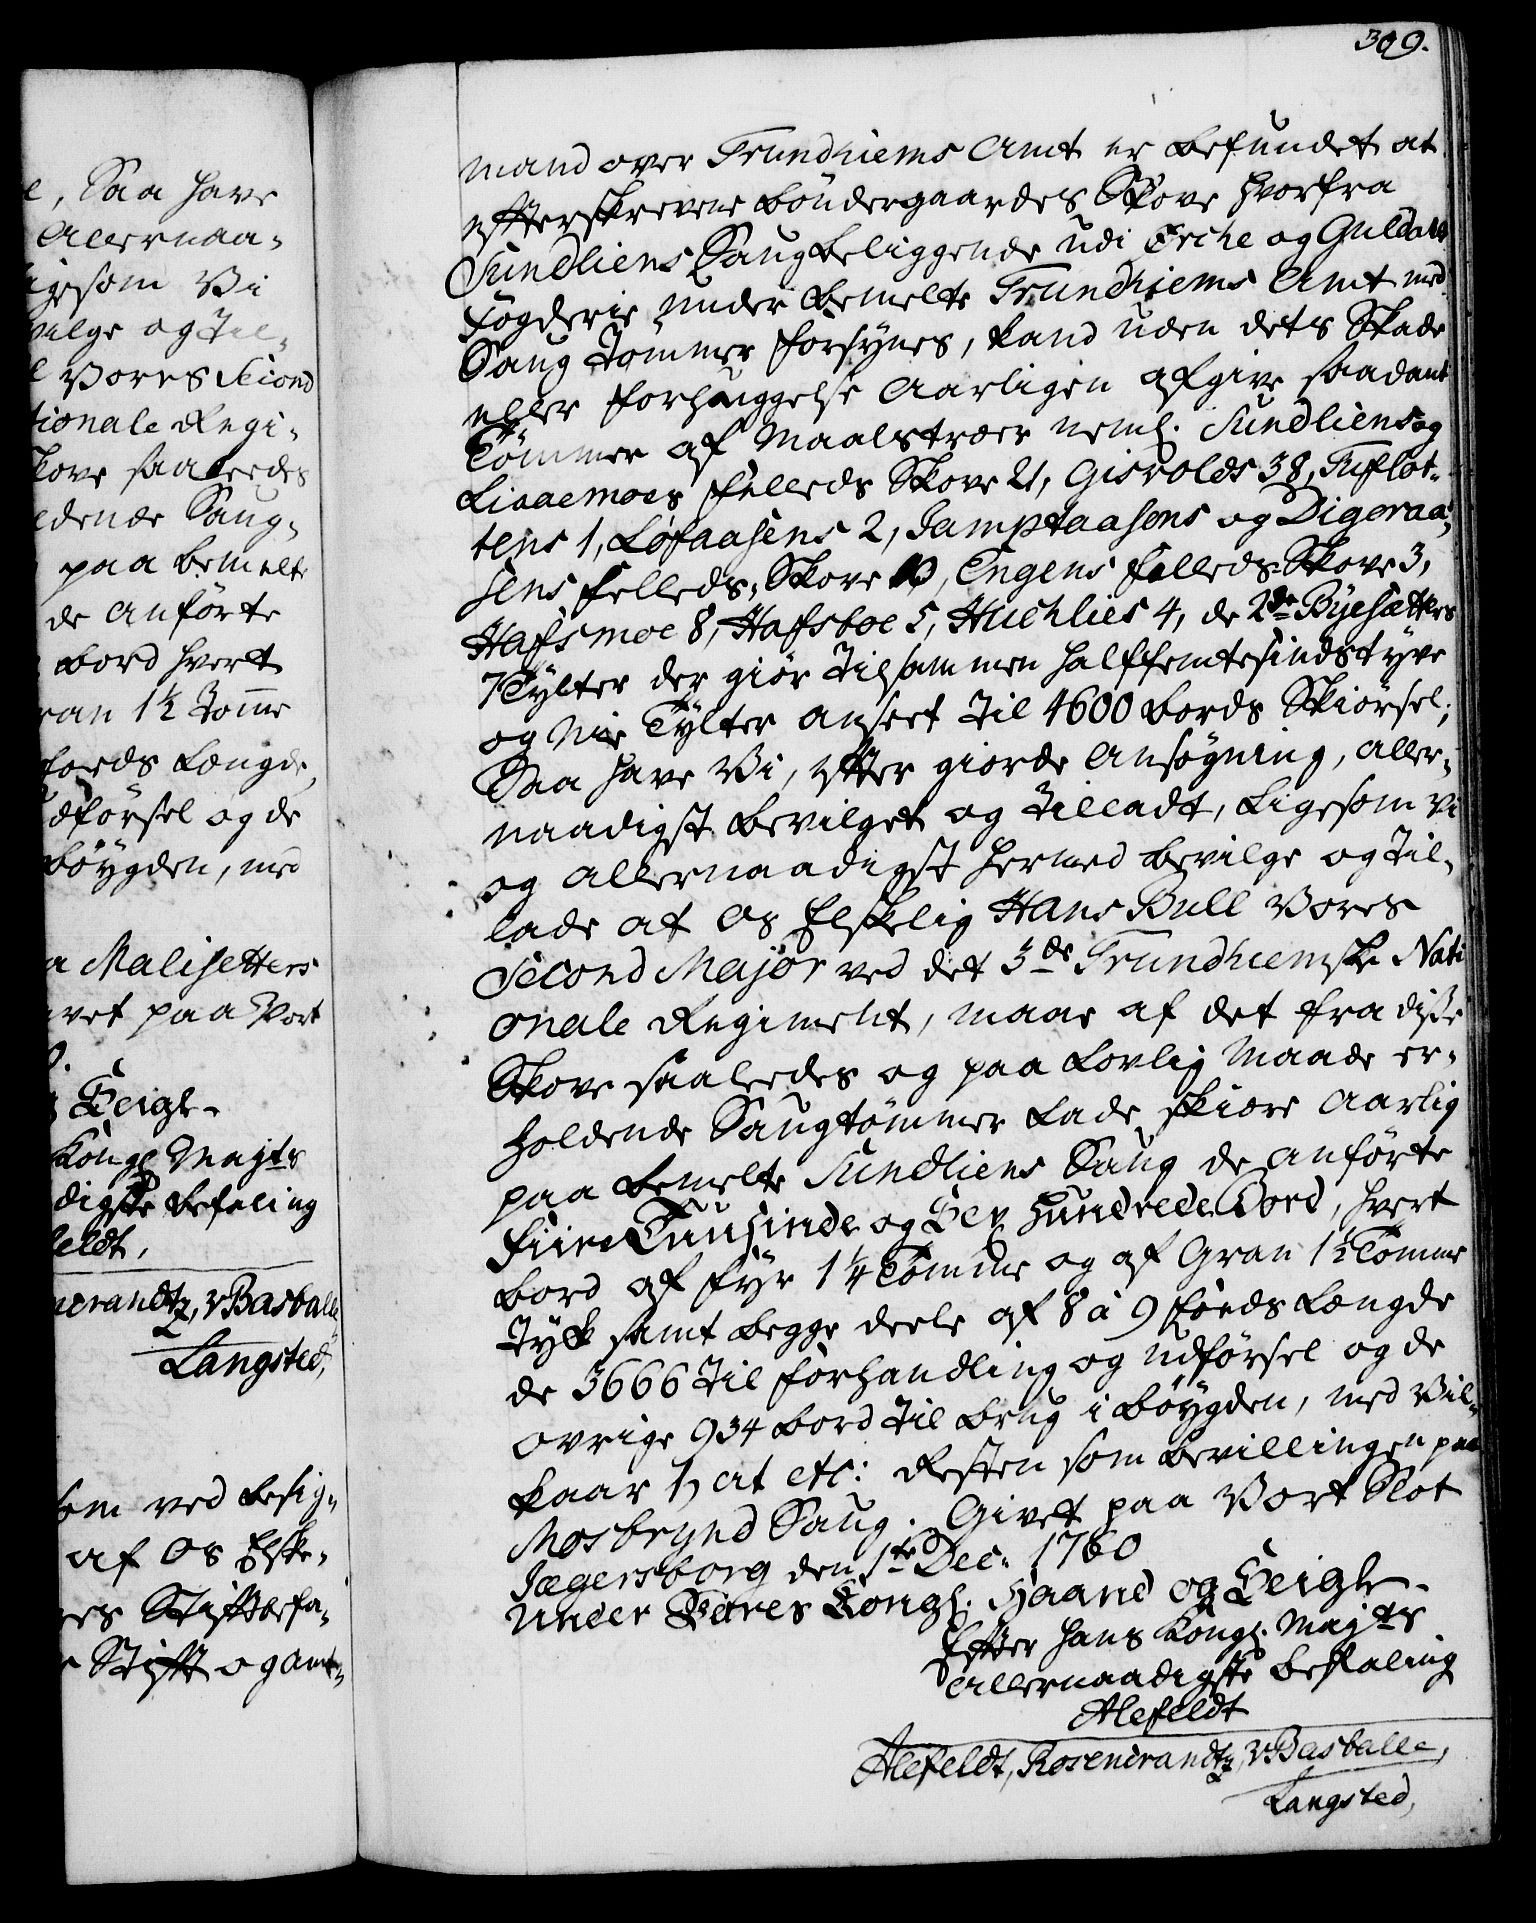 e, Saa have
Allernaa-
igesom Vi
vilge og Til-
e Vores Second
tionale Regi-
kove saaleedes
ldende Saug-
paa bemelte
de anførte
bord hvert
ran 1½ Tomme
foeds Længde,
dførsel og de
Bøygden, med
a Malisetters
ivet paa Vort
Seigl.
Kongl Majts
digste Befaling
feldt,
ncrandtz, v Basballe
Langsted,
som ved besig-
af Os Elske-
res Stiftbefa-
Stift og amt-
309.
mand over Trundhiems Amt er befundet at
efterskrevene Bøndergaardes Skove hvorfra
Sundliens Saug beliggende udi Orche og Guldals
Fogderie under bemelte Trundhiems Amt med
Saug Tømmer forsynes, kand uden dets Skade
eller forhuggelse Aarligen afgive saadant
Tømmer af Maalstræer neml. Sundliens og
Lisaemoes felleds Skove 21, Gisvolds 38, Tuflot-
tens 1, Løfaasens 2, Jamptaasens og Digeraa-
sens felleds Skove 10, Engens felleds Skove 3,
Hafsmoe 8, Hafsboe 5, Huchlies 4, de 2de Byesætters
7 Tylter der giør tilsammen halffemtesindstyve
og Nie Tylter anseet til 4600 bords Skiørsel;
Saa have Vi, efter giorde Ansøgning, aller-
naadigst bevilget og tilladt, Ligesom vi
og allernaadigst hermed bevilge og til-
lade at Os Elskelig Hans Bull Vores
Second Major ved det 3de Trundhiemske Nati
onale Regiment, maae af det fra disse
Skove saaleedes og paa Lovlig Maade er-
holdende Saugtømmer Lade skiære Aarlig
paa bemelte Sundliens Saug de anførte
Fiire Tuusinde og Sex Hundrede Bord, hvert
bord af fyr 1¼ Tomme og af Gran 1½ Tomme
tyk samt begge deele af 8 à 9 foeds Længde
de 3666 til forhandling og udførsel og de
øvrige 934 bord til brug i bøygden, med Vil-
kaar 1) at etc: Resten som bevillingen paa
Mosbrynd Saug. Givet paa Vort Slot
Jægersborg den 1te Dec. 1760
Under Vores Kongl. Haand og Seigl.
Efter Hans Kongl. Majts
allernaadigste Befaling
Alefeldt
Alefeldt, Rosencrandtz, v Basballe,
Langsted,